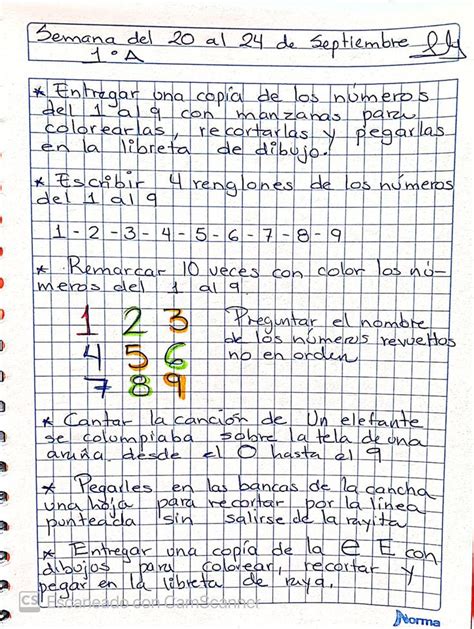 Semana del 20 al 24 de Septiembre
1°A
* Entregar una copia de los números
del 1 al 9 con manzanas para
colorearlas, recortarlas y pegarlas
en la libreta de dibujo.
* Escribir 4 renglones de los números
del 1 al 9
1 - 2 - 3 - 4 - 5 - 6 - 7 - 8 - 9
* Remarcar 10 veces con color los nú-
meros del 1 al 9.
1 2 3 Preguntar el nombre
de los números revueltos
4 5 6 no en orden
7 8 9
* Cantar la canción de Un elefante
se columpiaba sobre la tela de una
araña desde el 0 hasta el 9
* Pegarles en las bancas de la cancha
una hoja para recortar por la línea
punteada sin salirse de la rayita
* Entregar una copia de la e E con
dibujos para colorear, recortar y
pegar en la libreta de raya.
CS Escaneado con CamScanner
Norma